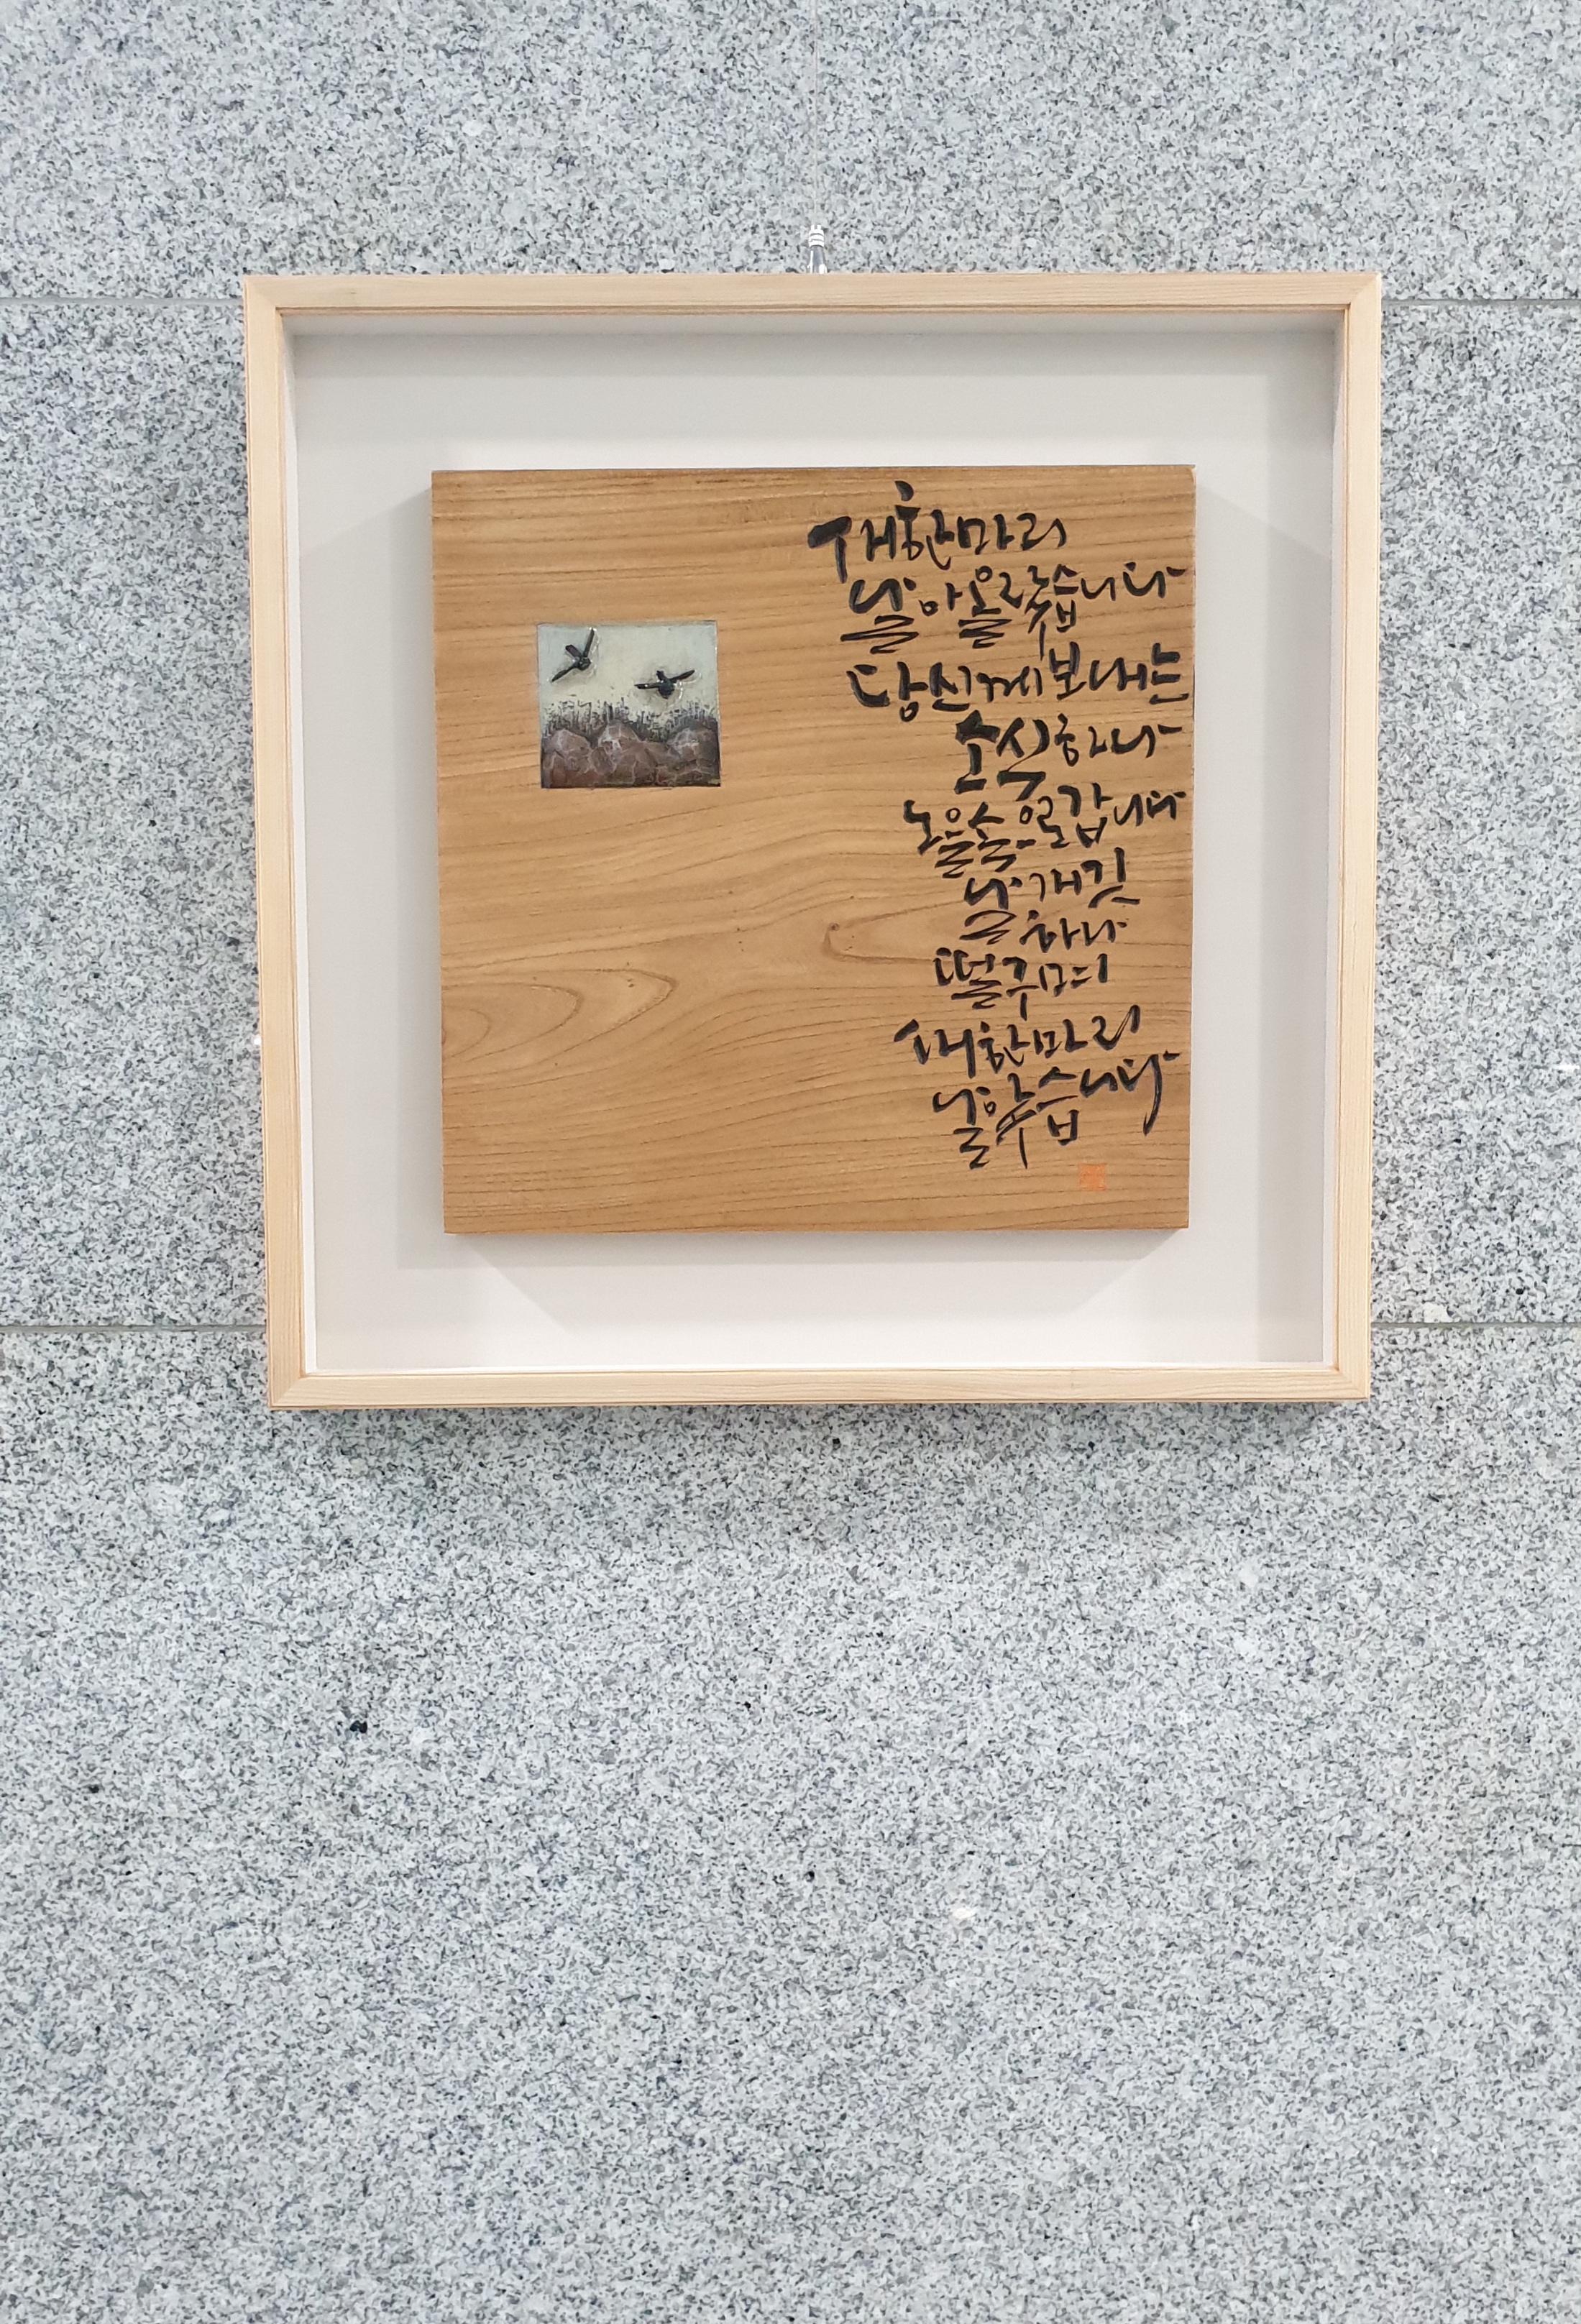 새한마리
날아올랐습니다
당신께보내는
소식하나
노을속으로갑니다
날개깃
하나
떨구며
새한마리
날았습니다